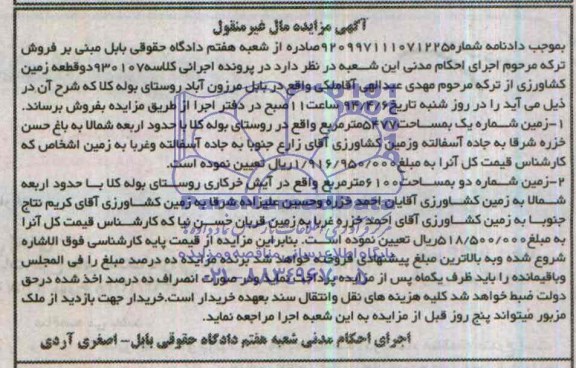 آگهی مزایده مال غیرمنقول
بموجب دادنامه شماره۹۲۰۹۹۷۱۱۱۰۷۱۲۲۵صادره از شعبه هفتم دادگاه حقوقی بابل مبنی بر فروش
ترکه مرحوم اجرای احکام مدنی این شعبه در نظر دارد در پرونده اجرائی کلاسه۹۳۰۱۰۷دوقطعه زمین
کشاورزی از ترکه مرحوم مهدی عبدالهی آقاملکی واقع در بابل مرزون آباد روستای بوله کلا که شرح آن در
ذیل می آید را در روز شنبه تاریخ۹۴/۴/۶ ساعت۱۱صبح در دفتر اجرا از طریق مزایده بفروش برساند.
۱-زمین شماره یک بمساحت۵۴۷۷مترمربع واقع در روستای بوله کلا با حدود اربعه شمالا به باغ حسن
خزره شرقا به جاده آسفالته وزمین کشاورزی آقای زارع جنوبا به جاده آسفالته وغربا به زمین اشخاص که
کارشناس قیمت کل آنرا به مبلغ۱/۹۱۶/۹۵۰/۰۰۰ریال تعیین نموده است.
۲-زمین شماره دو بمساحت۶۱۰۰مترمربع واقع در آیش خرکاری روستای بوله کلا با حدود اربعه
شمالا به زمین کشاورزی آقایان احمد خزره وحسین علیزاده شرقا به زمین کشاورزی آقای کریم نتاج
جنوبا به زمین کشاورزی آقای احمد خزره غربا به زمین قربان حسن نیا که کارشناس قیمت کل آنرا
به مبلغ۵۱۸/۵۰۰/۰۰۰ریال تعیین نموده است. بنابراین مزایده از قیمت پایه کارشناسی فوق الاشاره
شروع شده وبه بالاترین مبلغ پیشنهادی فروخته خواهد شد. برنده مزایده ده درصد مبلغ را فی المجلس
وباقیمانده را باید ظرف یکماه پس از مزایده پرداخت نماید ودر صورت انصراف ده درصد اخذ شده درحق
دولت ضبط خواهد شد کلیه هزینه های نقل وانتقال سند بعهده خریدار است.خریدار جهت بازدید از ملک
مزبور میتواند پنج روز قبل از مزایده به این شعبه اجرا مراجعه نماید.
اجرای احکام مدنی شعبه هفتم دادگاه حقوقی بابل- اصغری آردی